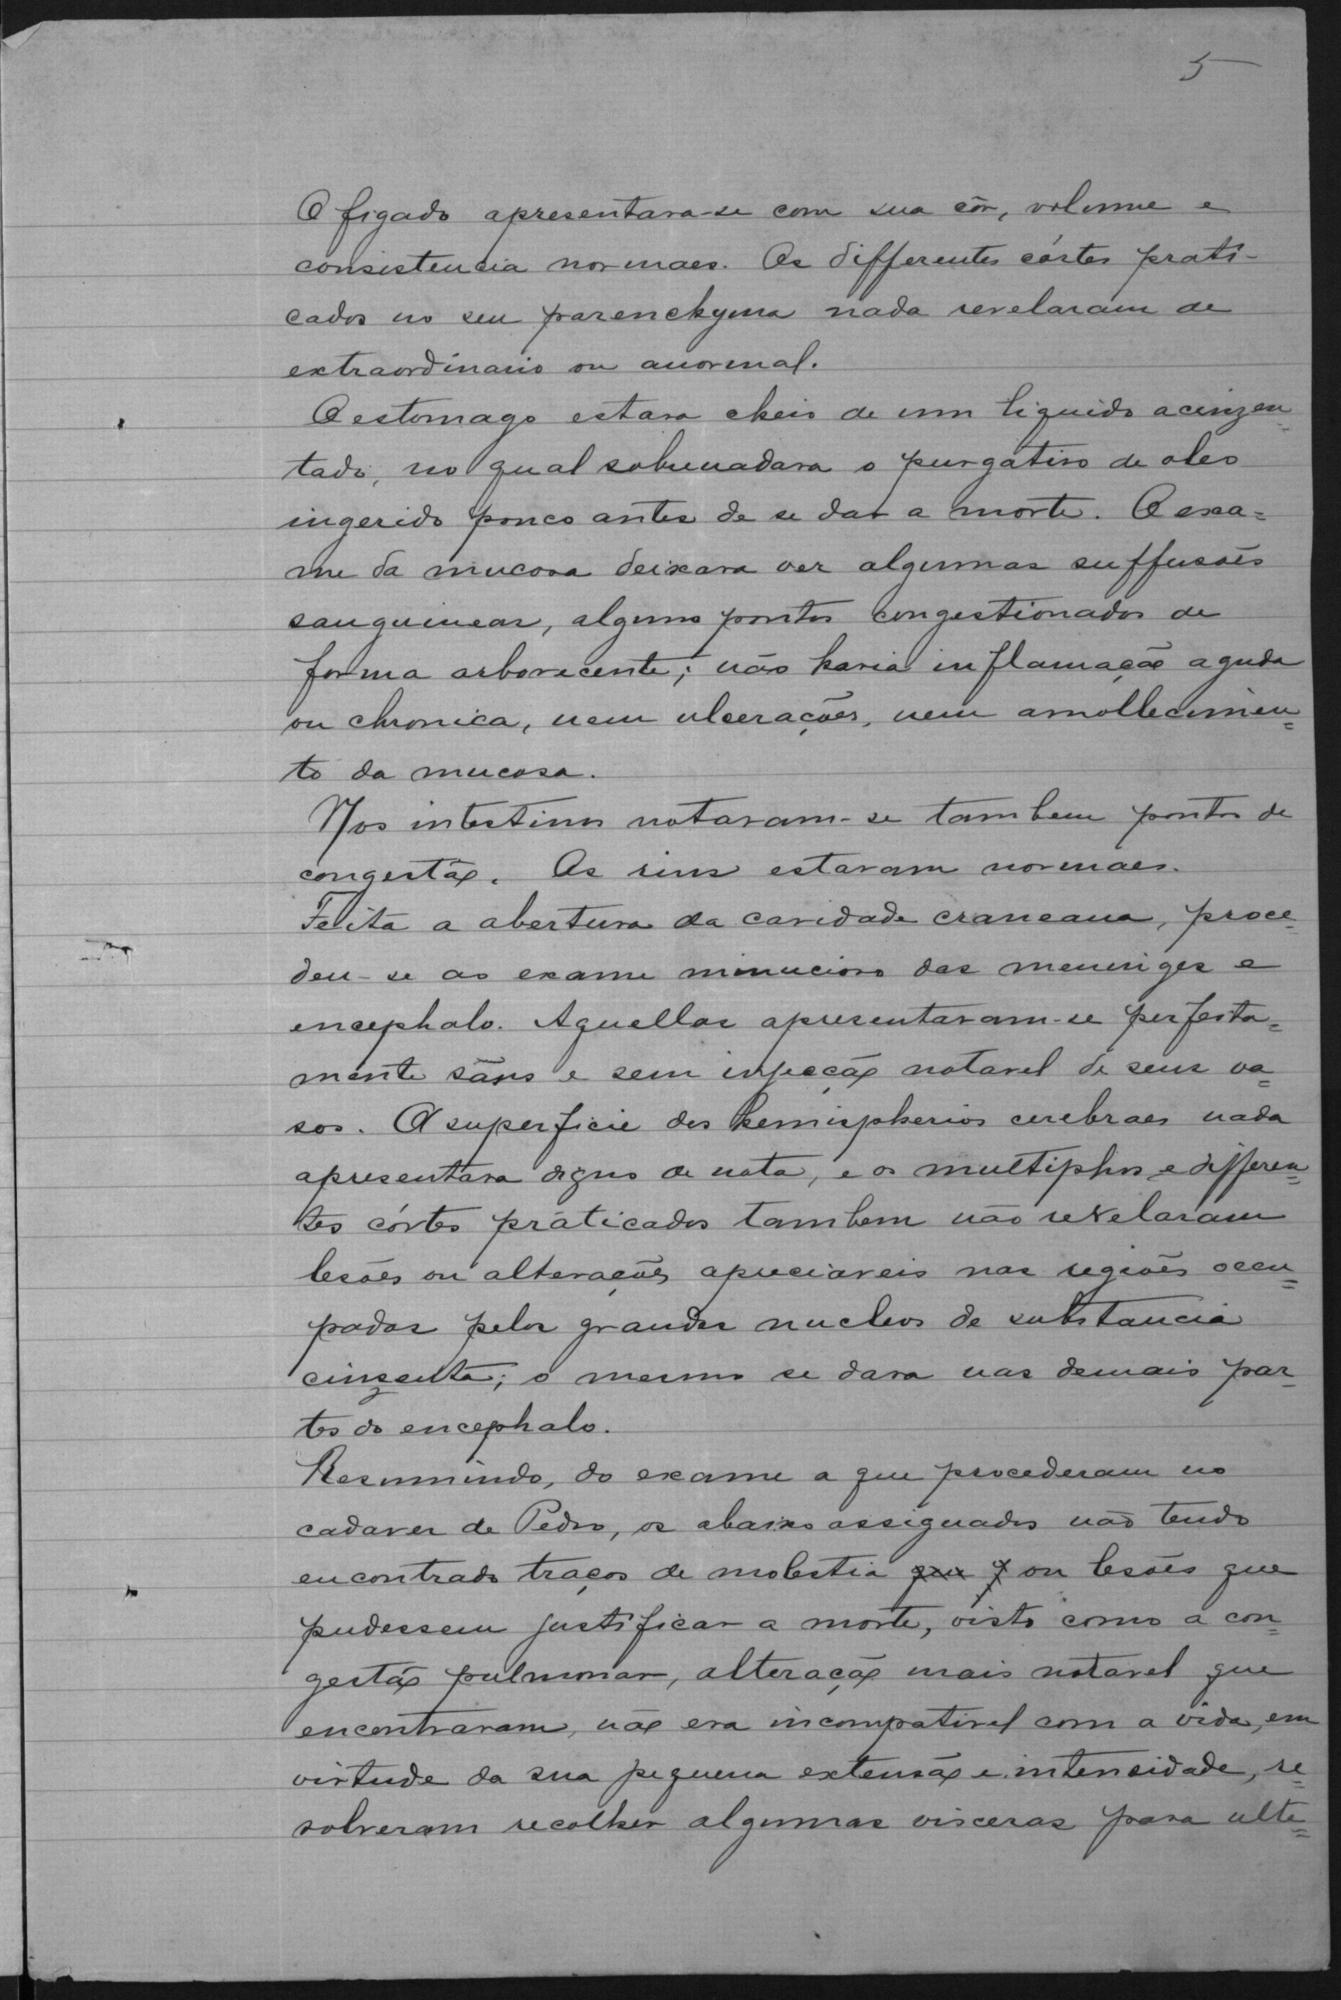 5
O figado apresentava-se com sua côr, volume e
consistencia normaes. Os differentes córtes prati-
cados no seu parenchyma nada revelaram de
extraordinario ou anormal.
O estomago estava cheio de um liquido acinzen=
tado, no qual sobrenadava o purgativo de oleo
ingerido pouco antes de se dar a morte. O exa=
me da mucosa deixava ver algumas suffusões
sanguineas, alguns pontos congestionados de
forma arborecente; não havia inflamação aguda
ou chronica, nem ulcerações, nem amollecimen=
to da mucosa.
Nos intestinos notavam-se tambem pontos de
congestão. Os rins estavam normaes.
Feita a abertura da cavidade craneana, proce=
deu-se ao exame minucioso das meninges e
encephalo. Aquellas apresentavam-se perfeita=
mente sãns e sem injecção notavel de seus va=
sos. A superficie dos hemispherios cerebraes nada
apresentava digno de nota, e os multiphos e differen=
tes córtes práticados tambem não revelaram
lesões ou alterações apreciaveis nas regiões occu=
padas pelos grandes nucleos de substancia
cinzenta; o mesmo se dava nas demais par=
tes do encephalo.
Resumindo, do exame a que procederam no
cadaver de Pedro, os abaixo assignados não tendo
encontrado traços de molestia que ou lesões que
pudessem justificar a morte, visto como a con=
gestão pulmonar, alteração mais notavel que
encontraram, não era incompativel com a vida, em
virtude da sua pequena extensão e intensidade, re=
solveram recolher algumas visceras para ulte=